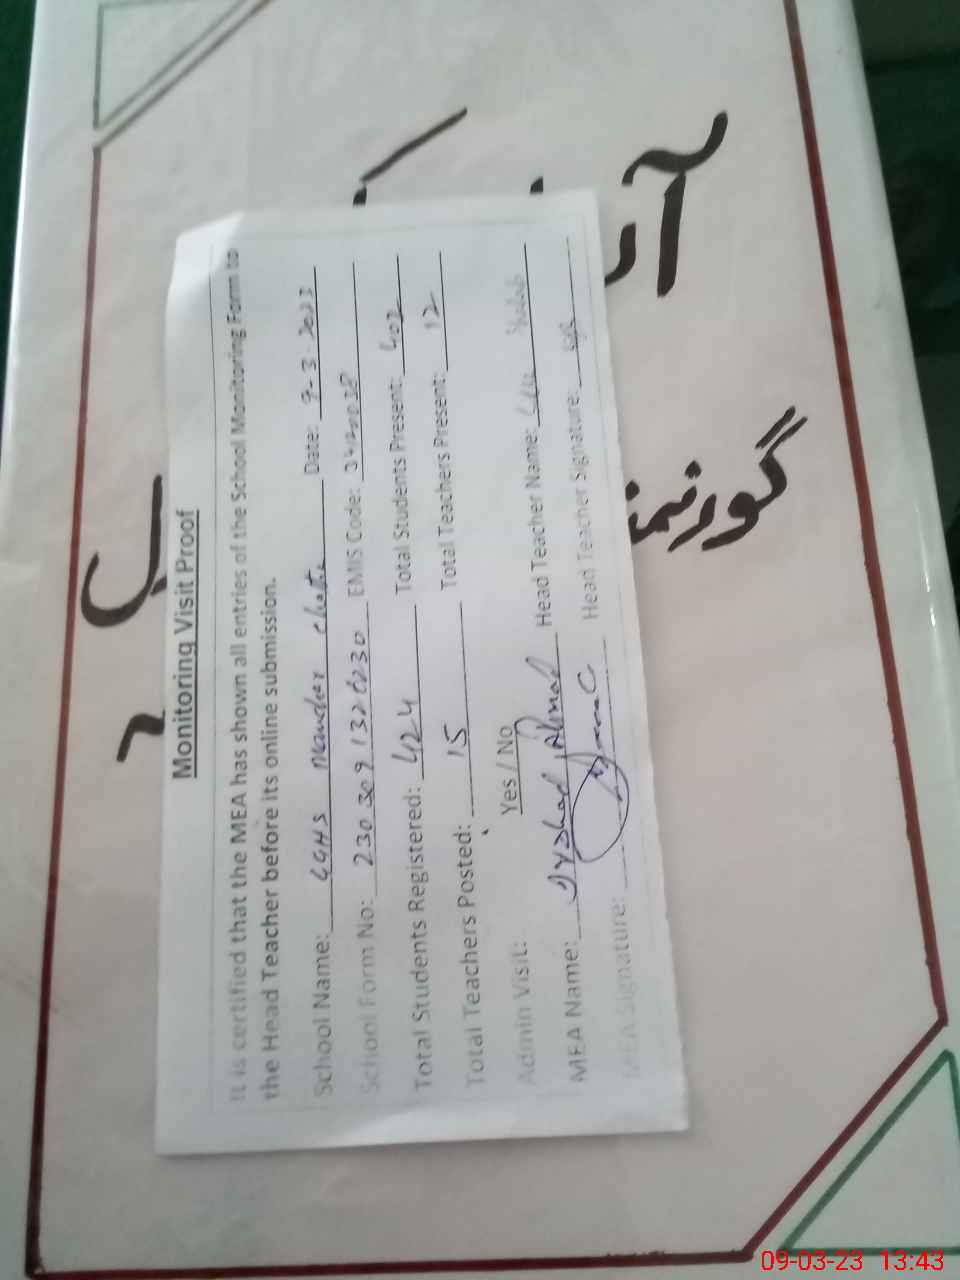 Monitoring Visit Proof
It is certified that the MEA has shown all entries of the School Monitoring Form to
the Head Teacher before its online submission.
School Name: GGHS Mancher Chatha Date: 9-3-2023
School Form No: 2303091326230 EMIS Code: 34120038
Total Students Registered: 424 Total Students Present: 402
Total Teachers Posted: 15 Total Teachers Present: 12
Admin Visit: Yes / No
MEA Name: Irshad Ahmad Head Teacher Name:
MEA Signature: Head Teacher Signature:
گورنمنٹ
09-03-23 13:43